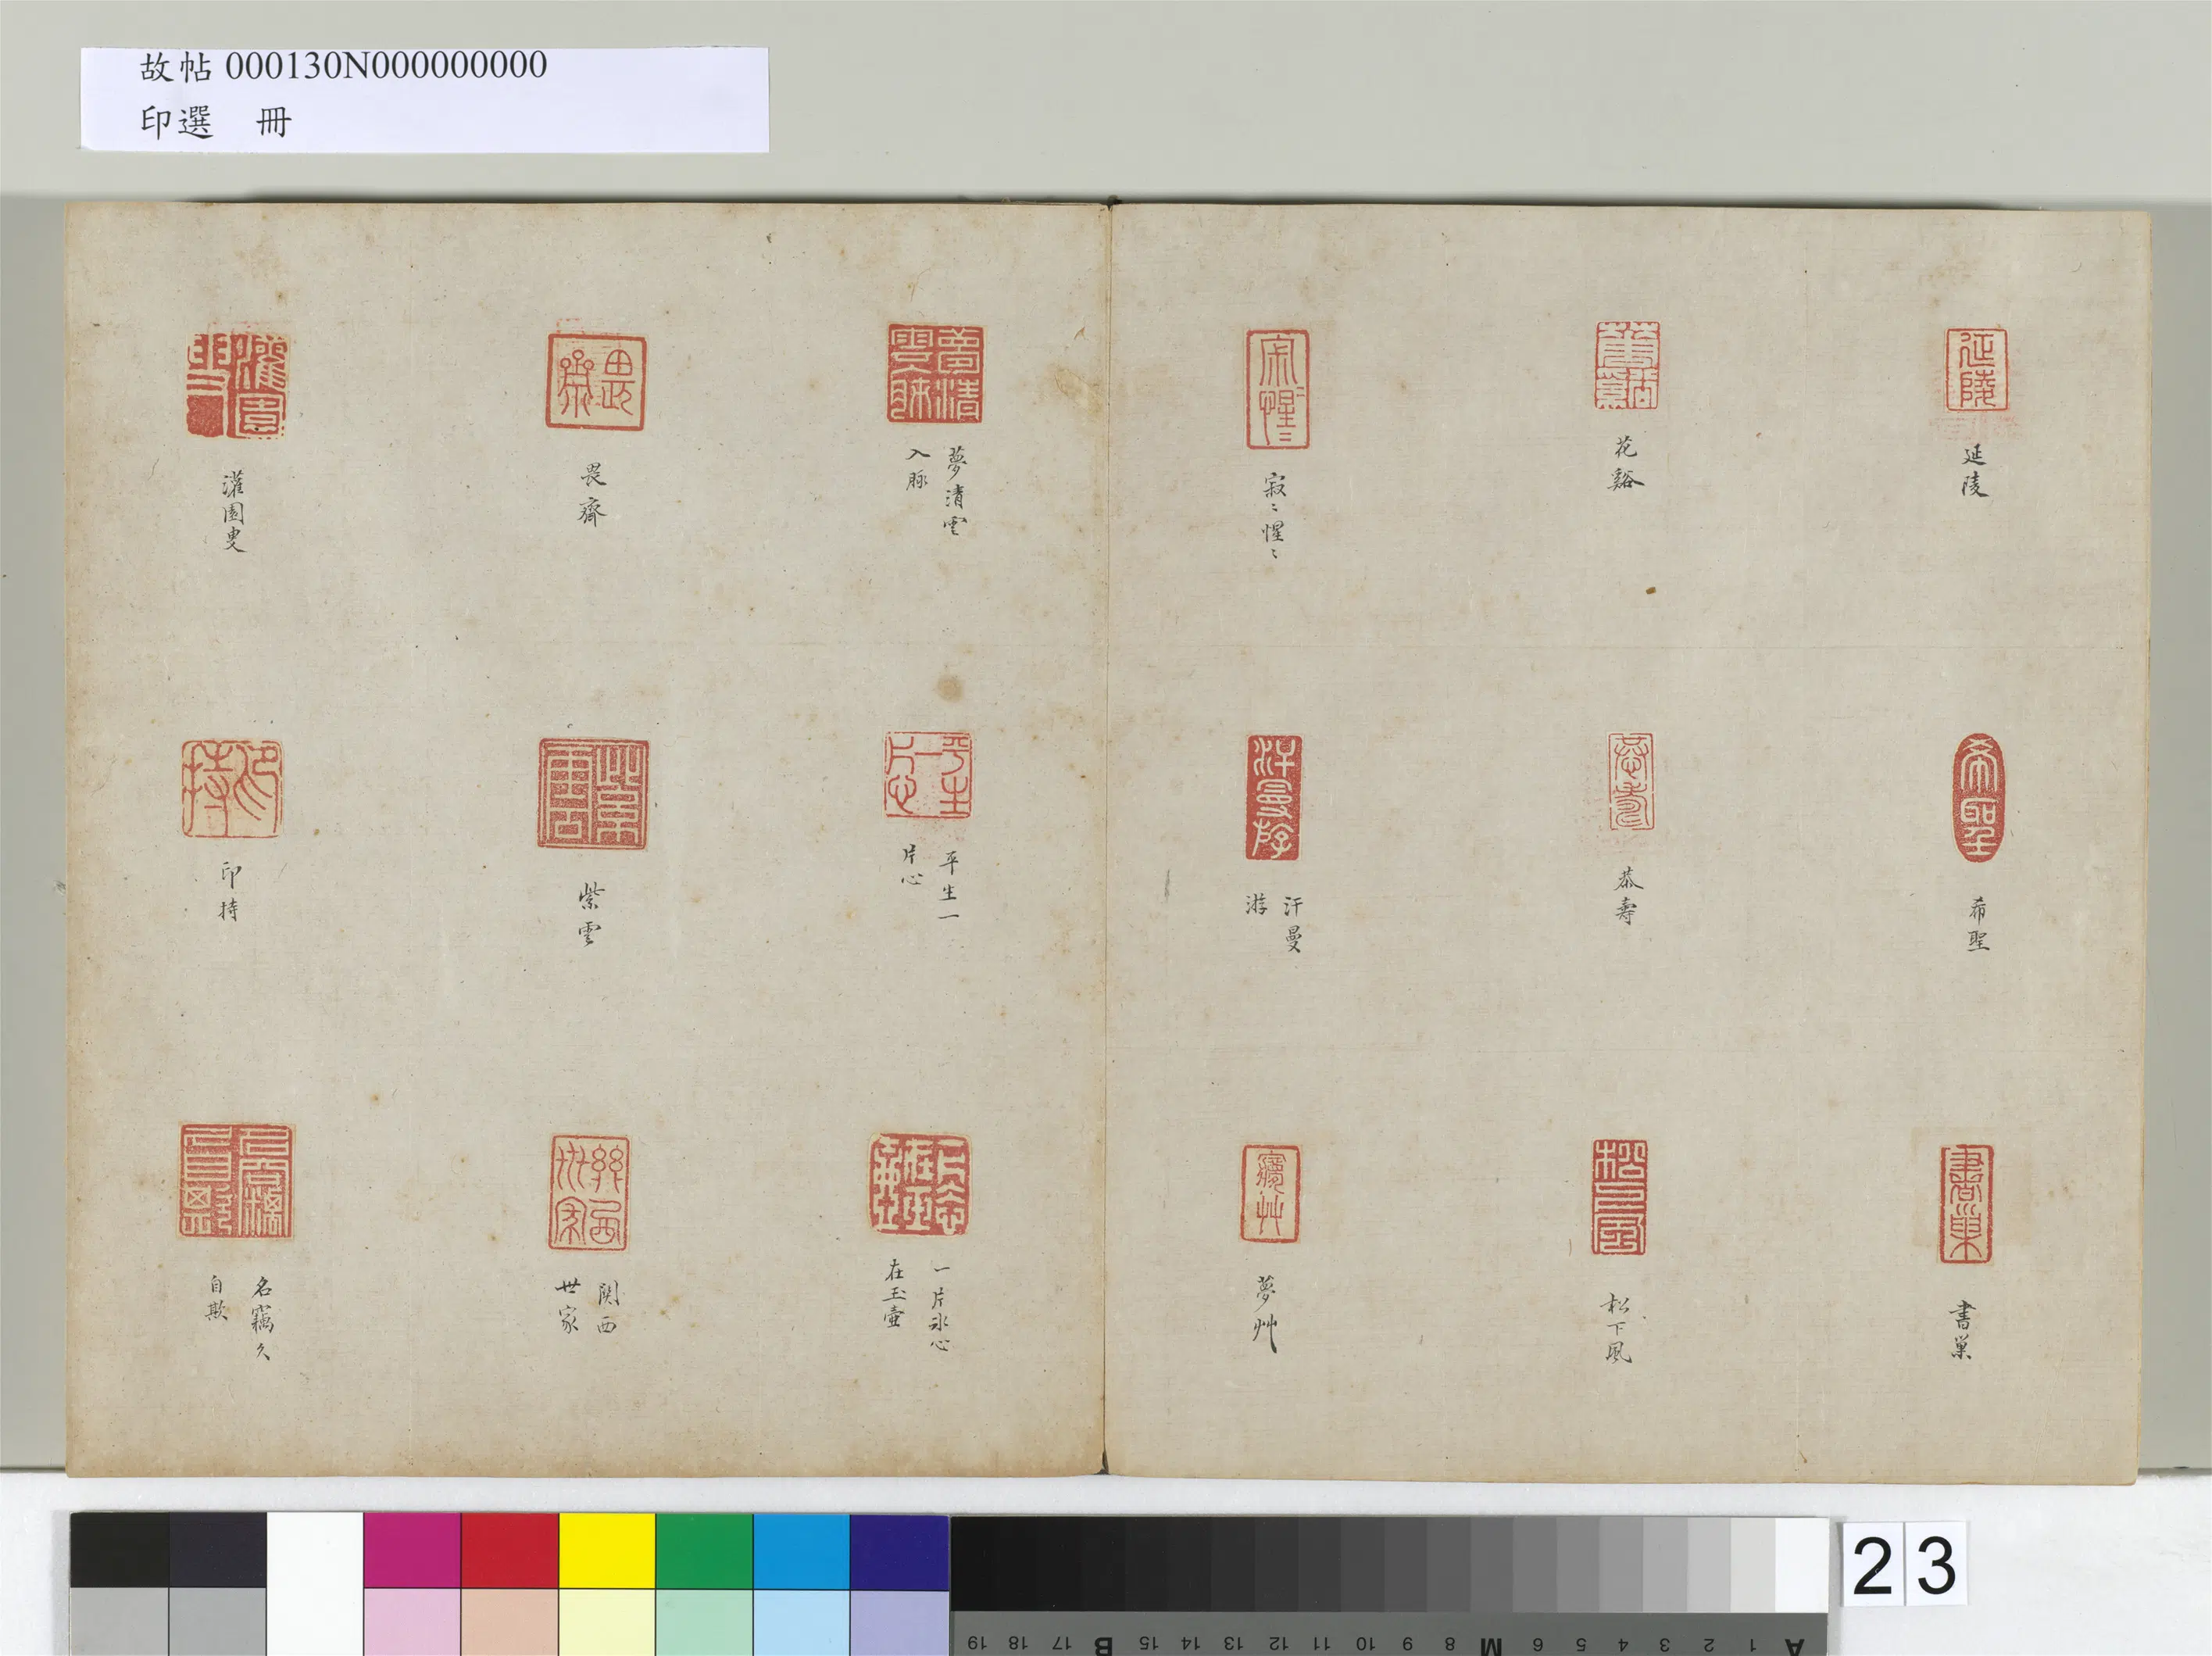 故帖 000130N000000000
印選 冊
延陵
花谿
寂〻惺〻
希聖
恭壽
汗曼
游
書巢
松下風
夢艸
夢清雲
入脉
畏齋
灌園叟
平生一
片心
紫雲
印持
一片氷心
在玉壷
関西
世家
名竊久
自欺
23
A 1 2 3 4 5 6 M 8 9 10 11 12 13 14 15 B 17 18 19